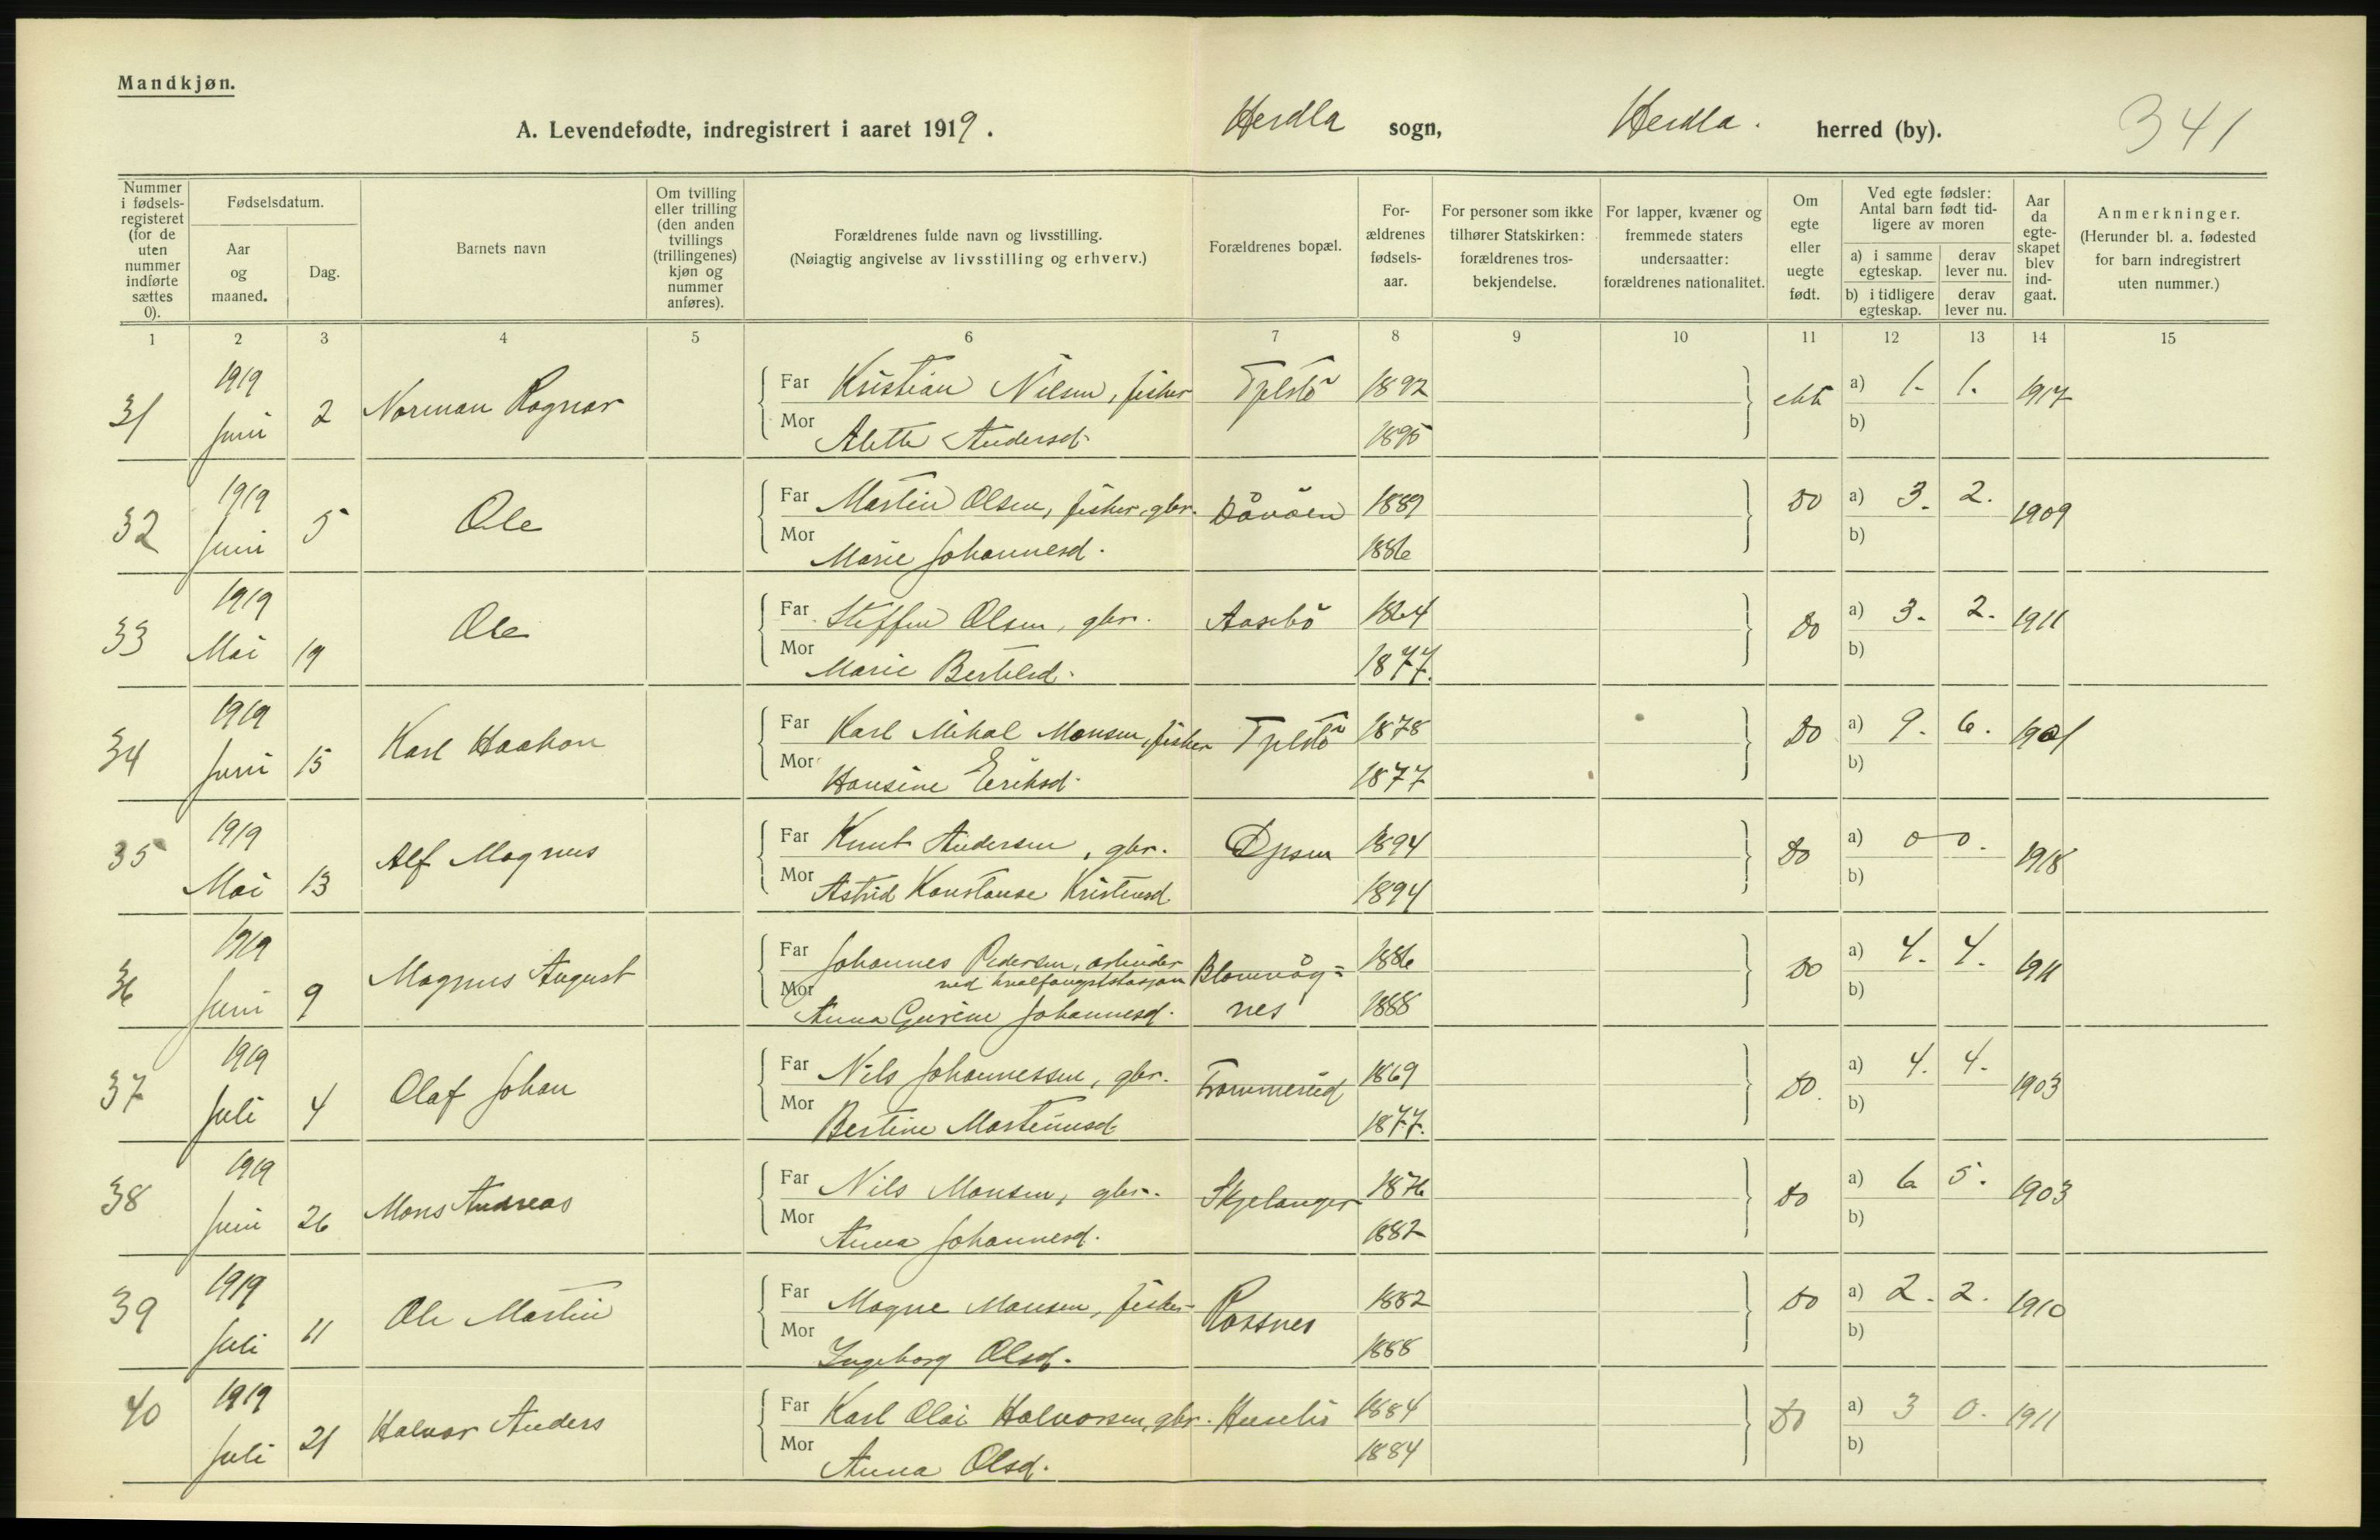 Mandkjøn.
A. Levendefødte, indregistrert i aaret 1919. Herdla sogn, Herdla. herred (by). 341
Nummer i fødsels-registeret (for de uten nummer indførte sættes 0).
Fødselsdatum.
Aar og maaned.
Dag.
Barnets navn
Om tvilling eller trilling (den anden tvillings (trillingenes) kjøn og nummer anføres).
Forældrenes fulde navn og livsstilling.
(Nøiagtig angivelse av livsstilling og erhverv.)
Forældrenes bopæl.
For-ældrenes fødsels-aar.
For personer som ikke tilhører Statskirken: forældrenes tros-bekjendelse.
For lapper, kvæner og fremmede staters undersaatter: forældrenes nationalitet.
Om egte eller uegte født.
Ved egte fødsler: Antal barn født tid-ligere av moren
a) i samme egteskap. derav lever nu.
b) i tidligere egteskap. derav lever nu.
Aar da egte-skapet blev ind-gaat.
Anmerkninger.
(Herunder bl. a. fødested for barn indregistrert uten nummer.)
1 2 3 4 5 6 7 8 9 10 11 12 13 14 15
31 1919 Juni 2 Norman Ragnar Far Kristian Nilsen, fisker 1892 a) 1. 1. 1917
Mor Alette Andersd. 1895 b)
32 1919 Juni 5 Ole Far Martin Olsen, fisker, gbr. Dåvöen 1889 Do a) 3. 2. 1909
Mor Marie Johannesd. 1886 b)
33 1919 Mai 19 Ole Far Steffen Olsen, gbr. Aasebö 1864 Do a) 3. 2. 1911
Mor Marie Bertelsd. 1877. b)
34 1919 Juni 15 Karl Haakon Far Karl Mikal Monsen, fisker 1878 Do a) 9. 6. 1901
Mor Hansine Eriksd. 1877 b)
35 1919 Mai 13 Alf Magnus Far Knut Andersen, gbr. 1894 Do a) 0 0. 1918
Mor Astrid Konstanse Kristensd. 1894 b)
36 1919 Juni 9 Magnus August Far Johannes Pedersen, arbeider ved hvalfangststasjon Blomvåg= 1886 Do a) 4. 4. 1911
Mor Anna Gurine Johannesd. nes 1888 b)
37 1919 Juli 4 Olaf Johan Far Nils Johannessen, gbr. Frammereid 1869 Do. a) 4. 4. 1903
Mor Bertine Martinusd. 1877. b)
38 1919 Juni 26 Mons Andreas Far Nils Monsen, gbr. Skjelanger 1876 Do a) 6 5. 1903
Mor Anna Johannesd. 1882 b)
39 1919 Juli 11 Ole Martin Far Magne Monsen, fisker Rossnes 1882 Do a) 2. 2. 1910
Mor Ingeborg Olsd. 1888 b)
40 1919 Juli 21 Halvor Anders Far Karl Olai Halvorsen, gbr. Husebö 1884 Do a) 3 0. 1911
Mor Anna Olsd. 1884 b)